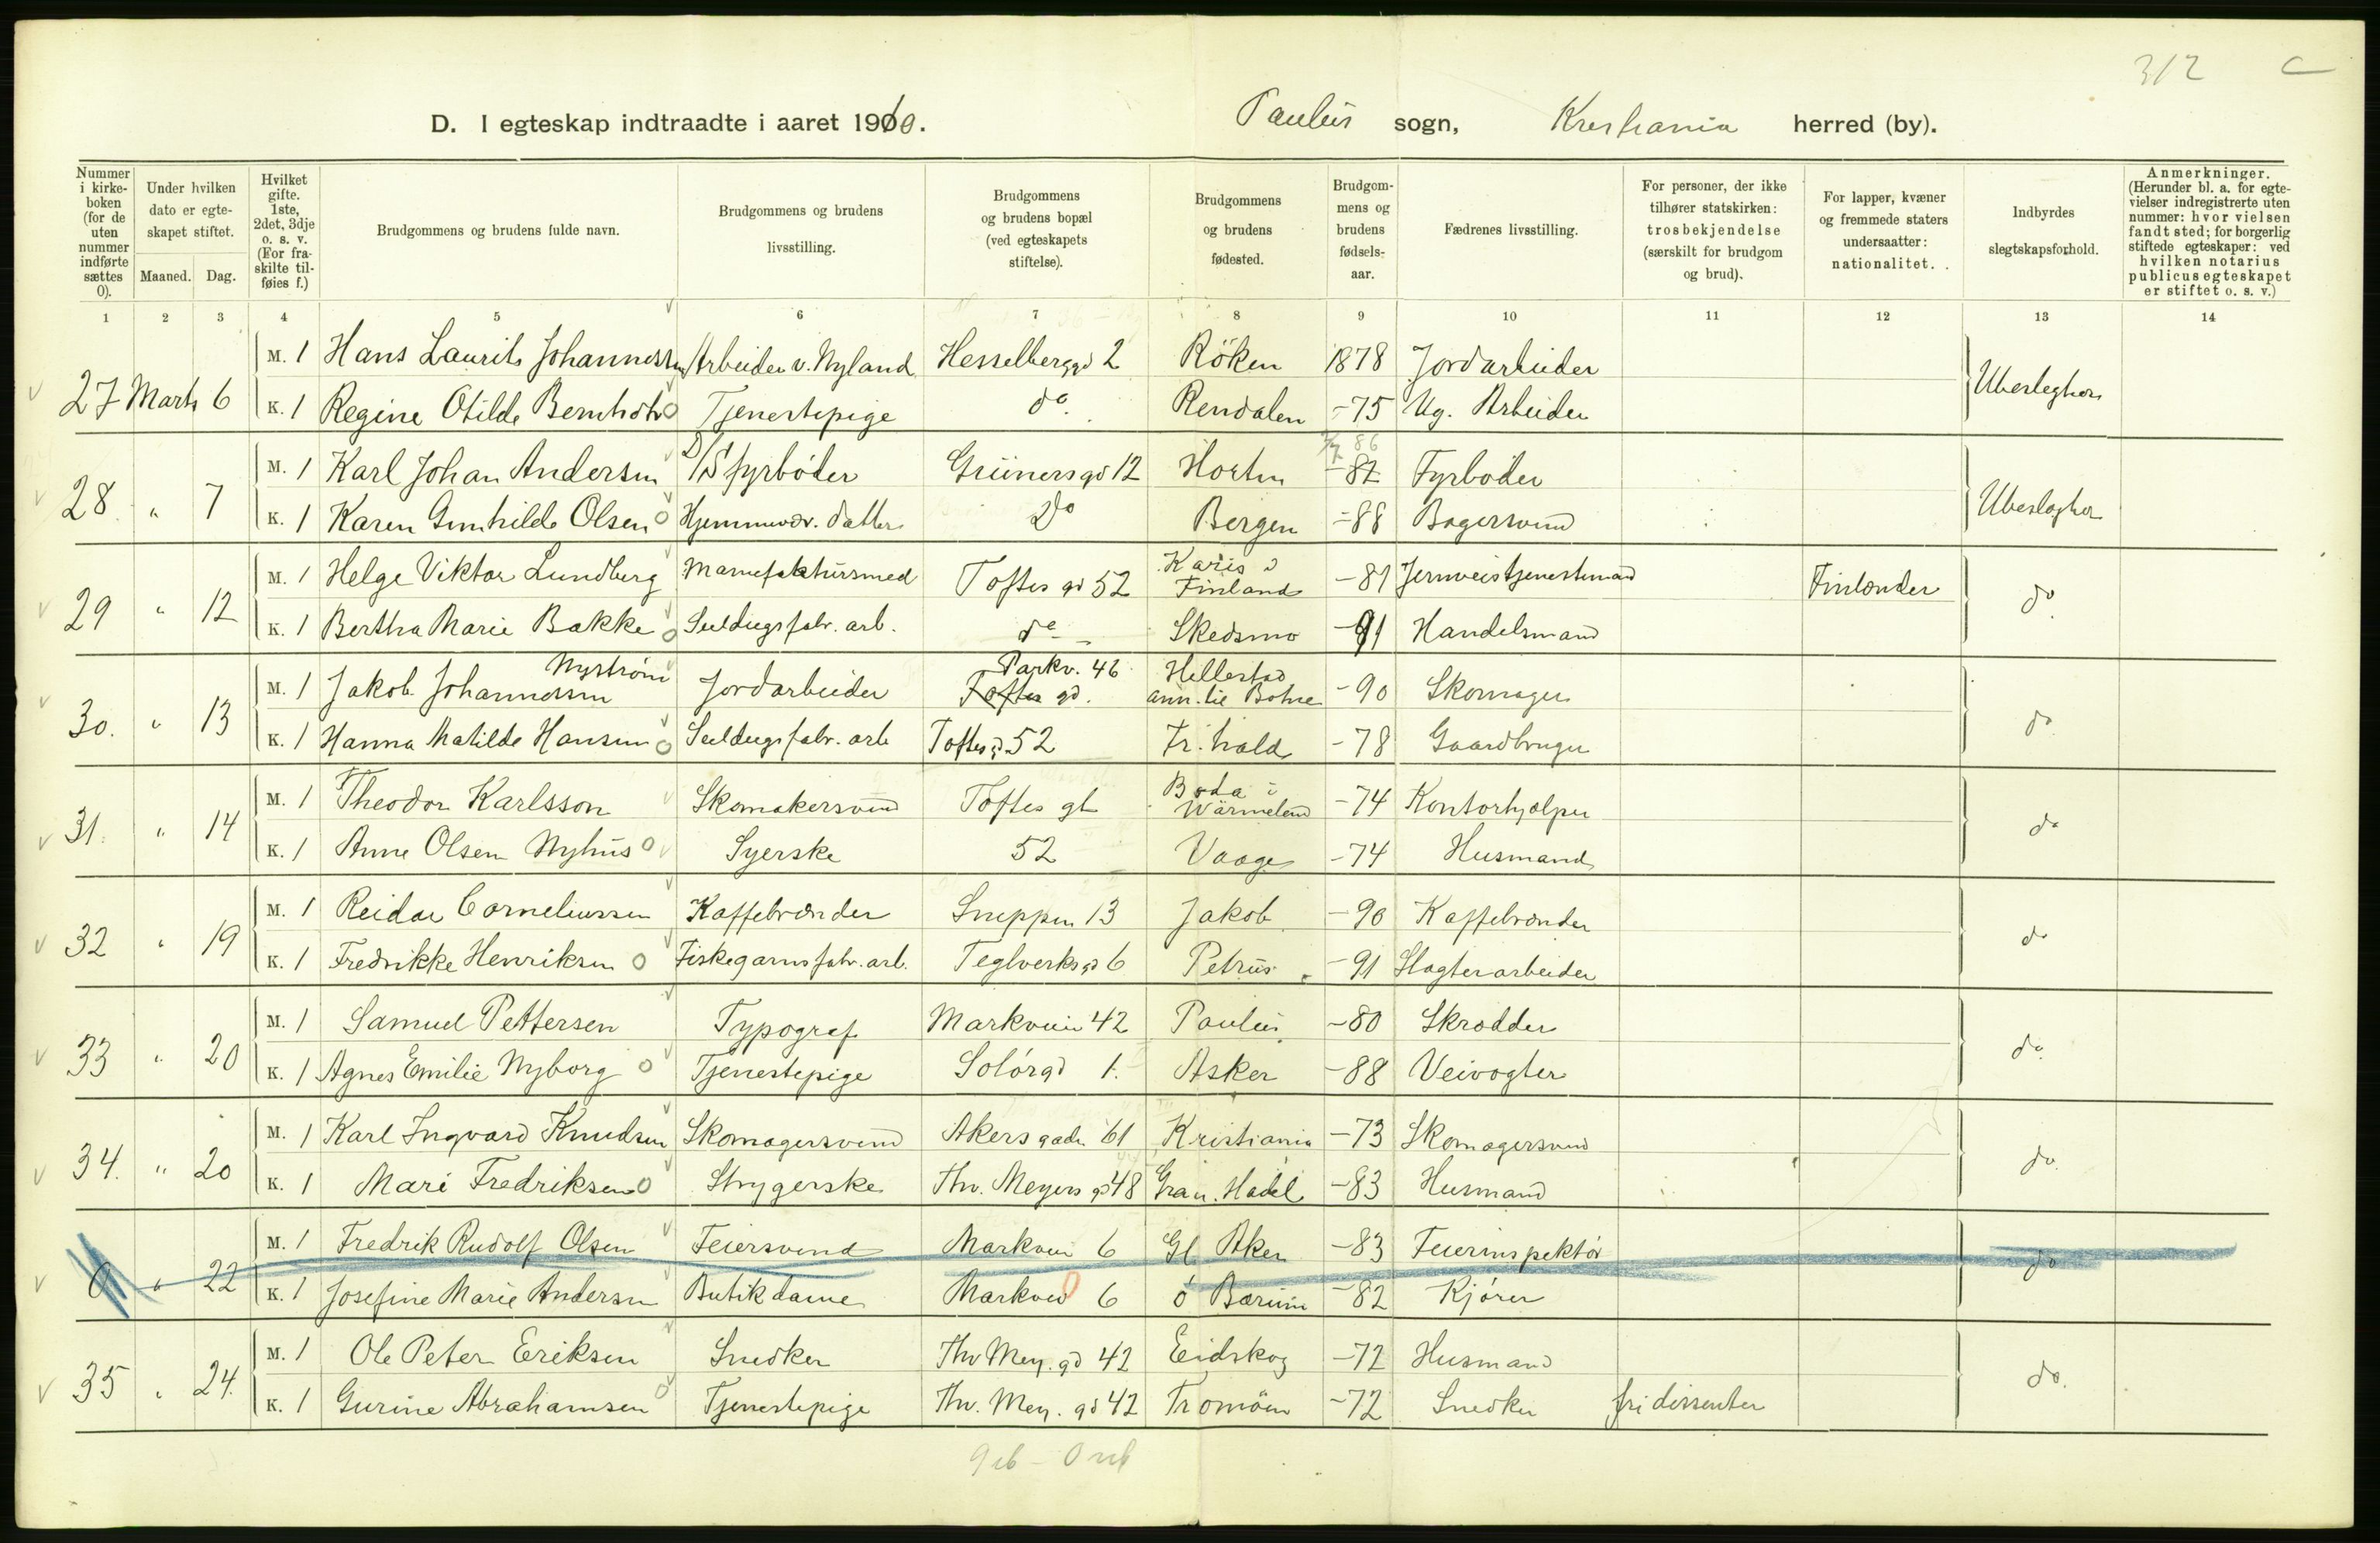 312 C
D. I egteskap indtraadte i aaret 1910. Paulus sogn, Kristiania herred (by).
Nummer i kirke- boken (for de uten nummer indførte sættes 0).
Under hvilken dato er egte- skapet stiftet.
Maaned. Dag.
Hvilket gifte. 1ste, 2det, 3dje o. s. v. (For fra- skilte til- føies f.)
Brudgommens og brudens fulde navn.
Brudgommens og brudens livsstilling.
Brudgommens og brudens bopæl (ved egteskapets stiftelse).
Brudgommens og brudens fødested.
Brudgom- mens og brudens fødsels- aar.
Fædrenes livsstilling.
For personer, der ikke tilhører statskirken: trosbekjendelse (særskilt for brudgom og brud).
For lapper, kvæner og fremmede staters undersaatter: nationalitet.
Indbyrdes slegtskapsforhold.
Anmerkninger. (Herunder bl. a. for egte- vielser indregistrerte uten nummer: hvor vielsen fandt sted; for borgerlig stiftede egteskaper: ved hvilken notarius publicus egteskapet er stiftet o. s. v.)
1 2 3 4 5 6 7 8 9 10 11 12 13 14
27 Marts 6 M. 1 Hans Laurits Johannessen Arbeider v. Nyland Hesselberggd 2 Röken 1878 Jordarbeider Ubeslegtet
K. 1 Regine Otilde Bernhoft Tjenestepige do. Rendalen -75 Ug. Arbeider
28 " 7 M. 1 Karl Johan Andersen D/S fyrbøder Grünersgd 12 Horten 86 -87 Fyrbøder Ubeslegtet
K. 1 Karen Gunhilde Olsen Hjemmevær. datter Do Bergen -88 Bagersvend
29 " 12 M. 1 Helge Viktor Lundberg Manufaktursmed Toftes gd 52 Karis i Finland -81 Jernveistjenestemand Finlænder do
K. 1 Bertha Marie Bakke Seildugsfabr. arb. do Skedsmo -91 Handelsmand
30. " 13 M. 1 Jakob Johannessen Nystrøm Jordarbeider Parkv. 46 Toftes gd. Hellestad ann. til Botne -90 Skomager do
K. 1 Hanna Matilde Hansen Seildugsfabr. arb Toftes gd 52 Fr. hald -78 Gaardbruger
31. " 14 M. 1 Theodor Karlsson Skomakersvend Toftes gt Boda i Wärmeland -74 Kontorhjælper do
K. 1 Anne Olsen Nyhus Syerske 52 Vaage -74 Husmand
32 " 19 M. 1 Reidar Corneliussen Kaffebrænder Sneppen 13 Jakob -90 Kaffebrænder do
K. 1 Fredrikke Henriksen Fiskegarnsfabr. arb. Teglverksgd 6 Petrus -91 Slagterarbeider
33 " 20 M. 1 Samuel Pettersen Typograf Markveien 42 Paulus -80 Skrædder do.
K. 1 Agnes Emilie Nyborg Tjenestepige Solørgd 1. Asker -88 Veivogter
34. " 20 M. 1 Karl Ingvard Knudsen Skomagersvend Akersgaden 61 Kristiania -73 Skomagersvend do.
K. 1 Mari Fredriksen Strygerske Thv. Meyers gd 48 Gran. Hadel -83 Husmand
0 " 22 M. 1 Fredrik Rudolf Olsen Feiersvend Markvei 6 Gl Aker -83 Feierinspektør do
K. 1 Josefine Marie Andersen Butikdame Markvei 6 ö Bærum -82 Kjører
35 " 24. M. 1 Ole Peter Eriksen Snedker Thv Mey. gd 42 Eidskog -72 Husmand do.
K. 1 Gurine Abrahamsen Tjenestepige Thv. Mey. gd 42 Tromöen -72 Snedker fri dissenter